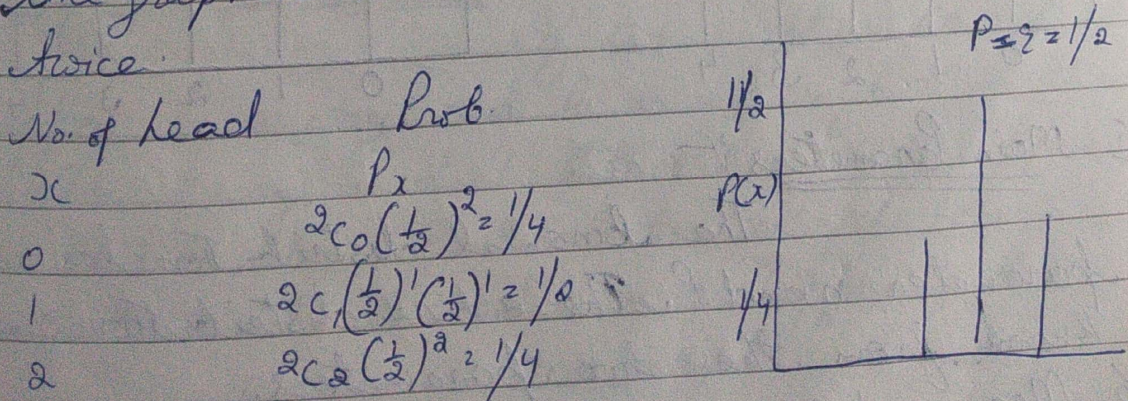 twice.
P=q=1/2
No. of head Prob. 1/2
x Px P(x)
0 ²C₀(1/2)² = 1/4
1 2C₁(1/2)¹(1/2)¹ = 1/2 1/4
2 2C₂(1/2)² = 1/4